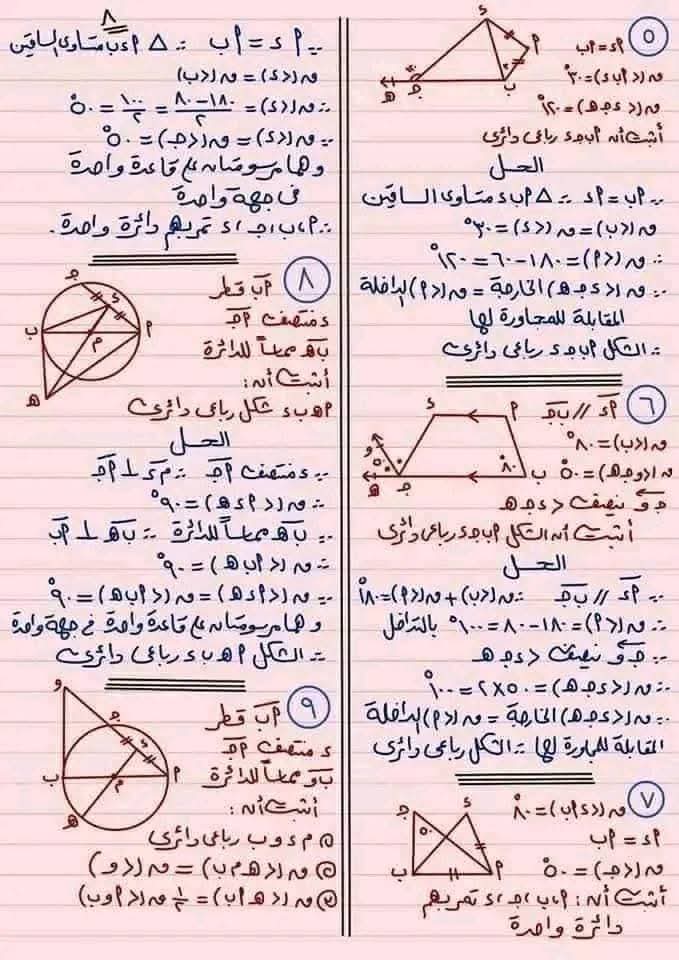 ٥
أء = أب
ق(دأبء) = ٣٠°
ق(دءجـهـ) = ١٢٠°
أثبت أنه أبجء رباعى دائرى
الحل
∵ أب = أء ∴ △ أبء متساوى الساقين
ق(دب) = ق(دء) = ٣٠°
∴ ق(دأ) = ١٨٠ - ٦٠ = ١٢٠°
∵ ق(دءجـهـ) الخارجة = ق(دأ) الداخلة
المقابلة للمجاورة لها
∴ الشكل أبجء رباعى دائرى
٦
أء // بجـ
ق(دب) = ٨٠°
ق(دوجـهـ) = ٥٠°
جـو ينصف دءجـهـ
أثبت أنه الشكل أبجء رباعى دائرى
الحل
∵ أء // بجـ ∴ ق(دب) + ق(دأ) = ١٨٠°
∴ ق(دأ) = ١٨٠ - ٨٠ = ١٠٠° بالتداخل
∵ جـو ينصف دءجـهـ
∴ ق(دءجـهـ) = ٥٠ × ٢ = ١٠٠°
∴ ق(دءجـهـ) الخارجة = ق(دأ) الداخلة
المقابلة للمجاورة لها ∴ الشكل رباعى دائرى
٧
ق(دءأب) = ٨٠°
أء = أب
ق(دجـ) = ٥٠°
أثبت أنه : أ، ب، جـ، ء تمر بهم
دائرة واحدة
٨
∵ أء = أب ∴ △ أءب متساوى الساقين
ق(دء) = ق(دب)
∴ ق(دء) = ١٨٠ - ٨٠ / ٢ = ١٠٠ / ٢ = ٥٠°
∵ ق(دء) = ق(دجـ) = ٥٠°
وهما مرسومتان على قاعدة واحدة
فى جهة واحدة
∴ أ، ب، جـ، ء تمر بهم دائرة واحدة.
٨
أب قطر
ء منتصف أجـ
بهـ مماساً للدائرة
أثبت أنه :
أهـبء شكل رباعى دائرى
الحل
∵ ء منتصف أجـ ∴ مء ⊥ أجـ
∴ ق(دأءهـ) = ٩٠°
∵ بهـ مماساً للدائرة ∴ بهـ ⊥ أب
∴ ق(دأبهـ) = ٩٠°
∵ ق(دأءهـ) = ق(دأبهـ) = ٩٠°
وهما مرسومتان على قاعدة واحدة فى جهة واحدة
∴ الشكل أهـبء رباعى دائرى
٩
أب قطر
ء منتصف أجـ
بو مماساً للدائرة
أثبت أنه :
١ مءوب رباعى دائرى
٢ ق(دهـمب) = ق(دو)
٣ ق(دهـأب) = ١/٢ ق(دأوب)